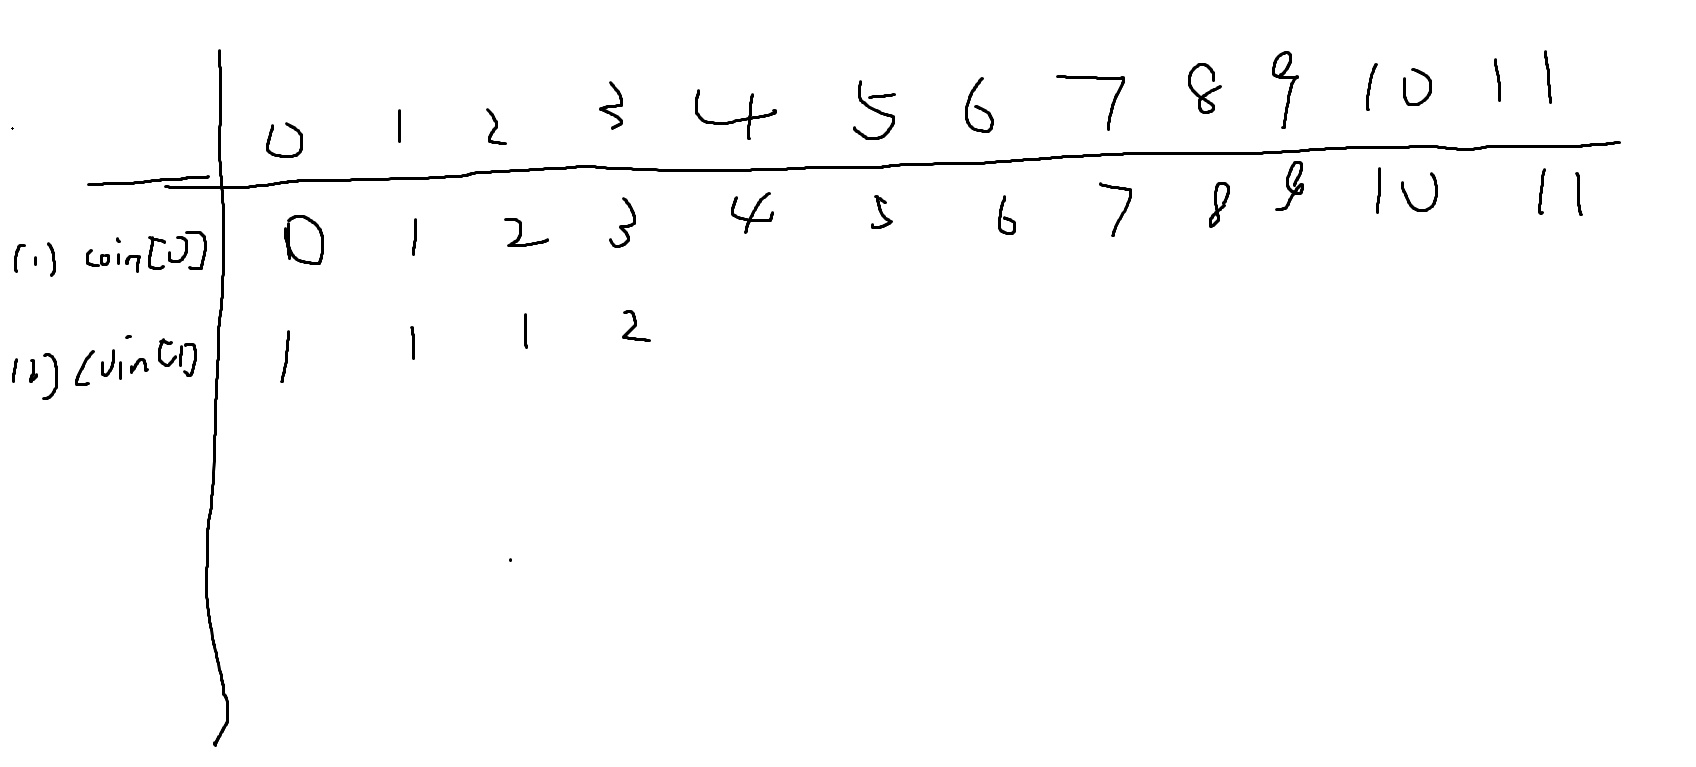 0 1 2 3 4 5 6 7 8 9 10 11
(1) coin[0] 0 1 2 3 4 5 6 7 8 9 10 11
coin[1] 1 1 1 2